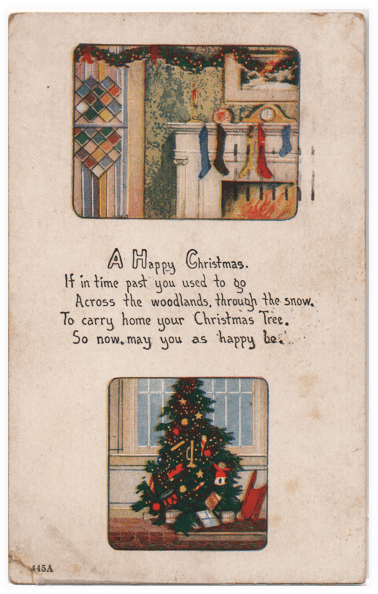 A Happy Christmas.
If in time past you used to go
Across the woodlands, through the snow.
To carry home your Christmas Tree.
So now, may you as happy be.
445A